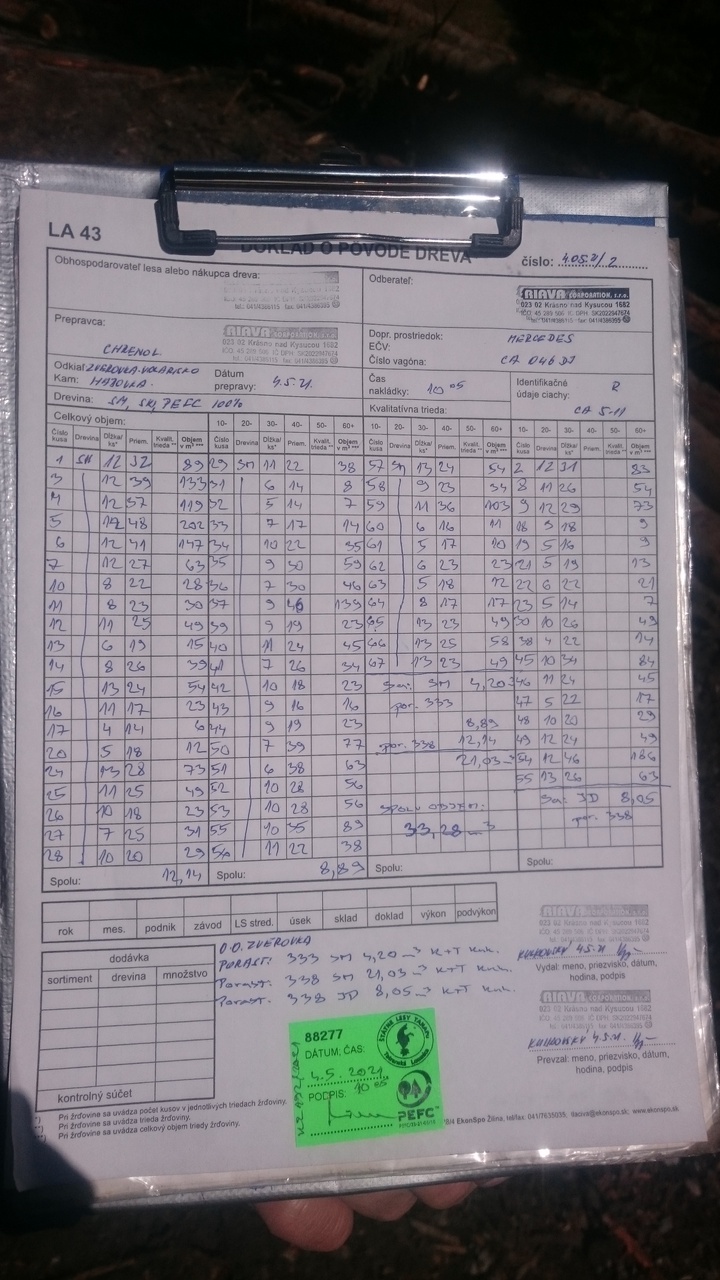 LA 43
DOKLAD O PÔVODE DREVA
číslo: 4.05.21/2
Obhospodarovateľ lesa alebo nákupca dreva:
Odberateľ:
RIAVA CORPORATION, s.r.o.
023 02 Krásno nad Kysucou 1682
Prepravca:
RIAVA CORPORATION, s.r.o.
023 02 Krásno nad Kysucou 1682
CHRENOL
Dopr. prostriedok: MERCEDES
EČV:
Číslo vagóna: CA 046 DJ
Odkiaľ: ZVEROVKA-VOLARISKO
Kam: HÁJOVKA.
Dátum
prepravy: 4.5.21.
Čas
nakládky: 10 05
Identifikačné
údaje ciachy: R
Drevina: SM, SK, PEFC 100%
Kvalitatívna trieda:
CA 5-11
Celkový objem: 10- 20- 30- 40- 50- 60+ 10- 20- 30- 40- 50- 60+ 10- 20- 30- 40- 50- 60+
Číslo kusa Drevina Dĺžka/ ks* Priem. Kvalit. trieda ** Objem v m³ *** Číslo kusa Drevina Dĺžka/ ks* Priem. Kvalit. trieda ** Objem v m³ *** Číslo kusa Drevina Dĺžka/ ks* Priem. Kvalit. trieda ** Objem v m³ *** Číslo kusa Drevina Dĺžka/ ks* Priem. Kvalit. trieda ** Objem v m³ ***
1 SM 12 32 89 29 SM 11 22 38 57 SM 13 24 54 2 12 31 83
3 12 39 133 31 6 14 8 58 9 23 34 8 11 26 54
4 12 37 119 32 5 14 7 59 11 36 103 9 12 29 73
5 12 48 202 33 7 17 14 60 6 16 11 18 9 18 9
6 12 41 147 34 10 22 35 61 5 17 10 19 5 16 9
7 12 27 63 35 9 30 59 62 6 23 23 21 5 19 13
10 8 22 28 36 7 30 46 63 5 18 12 22 6 22 21
11 8 23 30 37 9 46 139 64 8 17 17 23 5 14 7
12 11 25 49 39 9 19 23 65 13 23 49 30 10 26 49
13 6 19 15 40 11 24 45 66 13 25 58 38 4 22 14
14 8 26 39 41 7 26 34 67 13 23 49 45 10 34 84
15 13 24 54 42 10 18 23 Sa: SM 4,20 46 11 24 45
16 11 17 23 43 9 16 16 por. 333 47 5 22 17
17 4 14 6 44 9 19 23 8,89 48 10 20 29
20 5 18 12 50 7 39 77 por. 338 12,14 49 12 24 49
24 13 28 73 51 6 38 63 21,03 54 12 46 186
25 11 25 49 52 10 28 56 55 13 26 63
26 10 18 23 53 10 28 56 SPOLU OBJEM: Sa: JD 8,05
27 7 25 31 55 10 35 89 33,28 m³ por. 338
28 10 20 29 56 11 22 38
Spolu: 12,14 Spolu: 8,89 Spolu: Spolu:
rok mes. podnik závod LS stred. úsek sklad doklad výkon podvýkon
dodávka
sortiment drevina množstvo
kontrolný súčet
O.O. ZVEROVKA
PORAST: 333 SM 4,20 m³ K+T
Porast: 338 SM 21,03 m³ K+T
Porast: 338 JD 8,05 m³ K+T
Vydal: meno, priezvisko, dátum,
hodina, podpis
Prevzal: meno, priezvisko, dátum,
hodina, podpis
88277
DÁTUM, ČAS:
4.5.2021
10 05
PODPIS:
ŠTÁTNE LESY TANAPu
Tatranská Lomnica
PEFC
Pri žrďovine sa uvádza počet kusov v jednotlivých triedach žrďoviny.
Pri žrďovine sa uvádza trieda žrďoviny.
Pri žrďovine sa uvádza celkový objem triedy žrďoviny.
EkonSpo Žilina, tel/fax: 041/7635035, tlkova@ekonspo.sk, www.ekonspo.sk